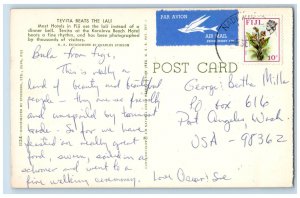 TEVITA BEATS THE LALI
Most Hotels in Fiji use the lali instead of a
dinner bell. Tevita at the Korolevu Beach Hotel
beats a rhythm, and has been photographed
by thousands of visitors.
PAR AVION
FIJI
10c
POST CARD
Bula from Fiji,
This is really a
land of beauty and beautiful
people - they are so friendly
and unspoiled by
So far we have
on really great
food, swam, on a
schooner and went to a
fire walking ceremony.
Love Oscar & Sue
George & Betha Miller
PO Box 616
Port Angeles, Wash.
USA - 98362